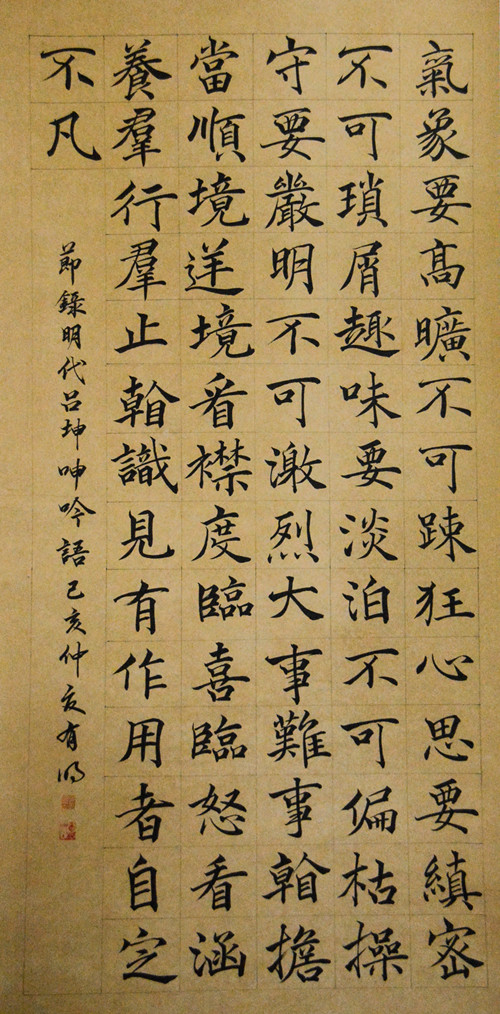 氣象要髙曠不可踈狂心思要縝密
不可瑣屑趣味要淡泊不可偏枯操
守要嚴明不可激烈大事難事看擔
當順境逆境看襟度臨喜臨怒看涵
養羣行羣止看識見有作用者自定
不凡
節錄明代呂坤呻吟語己亥仲夏有明